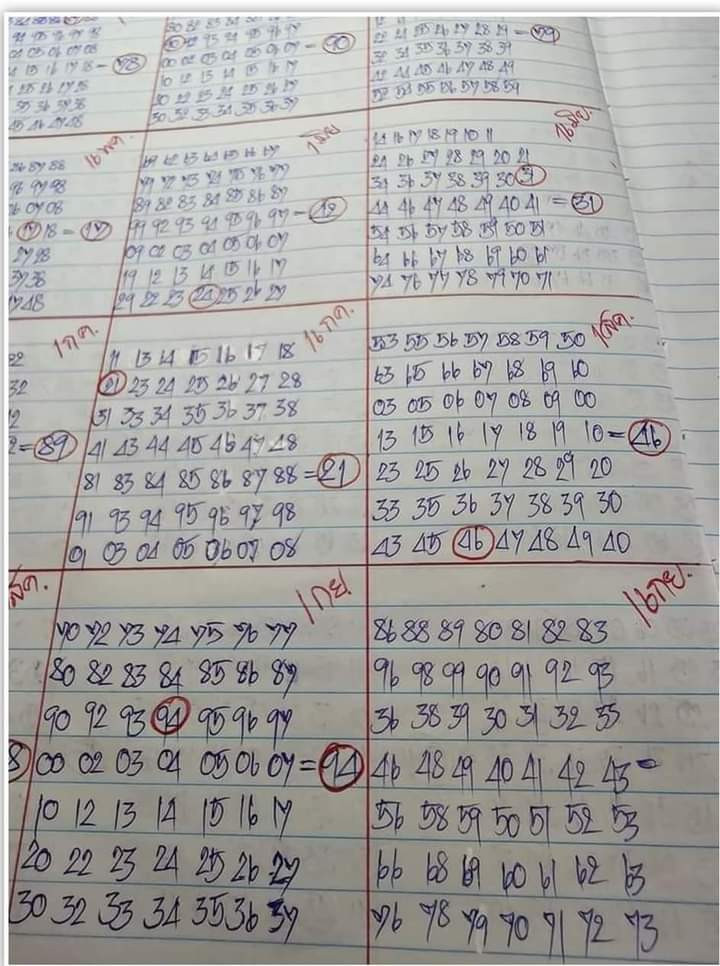 15 16 17 18 = 78
25 26 27 28
35 36 37 38
45 46 47 48
90 92 93 94 95 96 97 = 90
00 02 03 04 05 06 07
10 12 13 14 15 16 17
20 22 23 24 25 26 27
30 32 33 34 35 36 37
22 24 25 26 27 28 29 = 59
32 34 35 36 37 38 39
42 44 45 46 47 48 49
52 54 55 56 57 58 59
16 พค.
86 87 88
96 97 98
06 07 08
17 18 = 17
27 28
37 38
47 48
1 มิย
69 62 63 64 65 66 67
79 72 73 74 75 76 77
89 82 83 84 85 86 87
99 92 93 94 95 96 97 = 42
09 02 03 04 05 06 07
19 12 13 14 15 16 17
29 22 23 24 25 26 27
16 มิย.
14 16 17 18 19 10 11
24 26 27 28 29 20 21
34 36 37 38 39 30 31
44 46 47 48 49 40 41 = 31
54 56 57 58 59 50 51
64 66 67 68 69 60 61
74 76 77 78 79 70 71
1 กค.
22
32
= 89
16 กค.
11 13 14 15 16 17 18
21 23 24 25 26 27 28
31 33 34 35 36 37 38
41 43 44 45 46 47 48
81 83 84 85 86 87 88 = 21
91 93 94 95 96 97 98
01 03 04 05 06 07 08
1 สค.
53 55 56 57 58 59 50
63 65 66 67 68 69 60
03 05 06 07 08 09 00
13 15 16 17 18 19 10 = 46
23 25 26 27 28 29 20
33 35 36 37 38 39 30
43 45 46 47 48 49 40
สค.
8
1 กย.
70 72 73 74 75 76 77
80 82 83 84 85 86 87
90 92 93 94 95 96 97
00 02 03 04 05 06 07 = 94
10 12 13 14 15 16 17
20 22 23 24 25 26 27
30 32 33 34 35 36 37
16 กย.
86 88 89 80 81 82 83
96 98 99 90 91 92 93
36 38 39 30 31 32 33
46 48 49 40 41 42 43 =
56 58 59 50 51 52 53
66 68 69 60 61 62 63
76 78 79 70 71 72 73